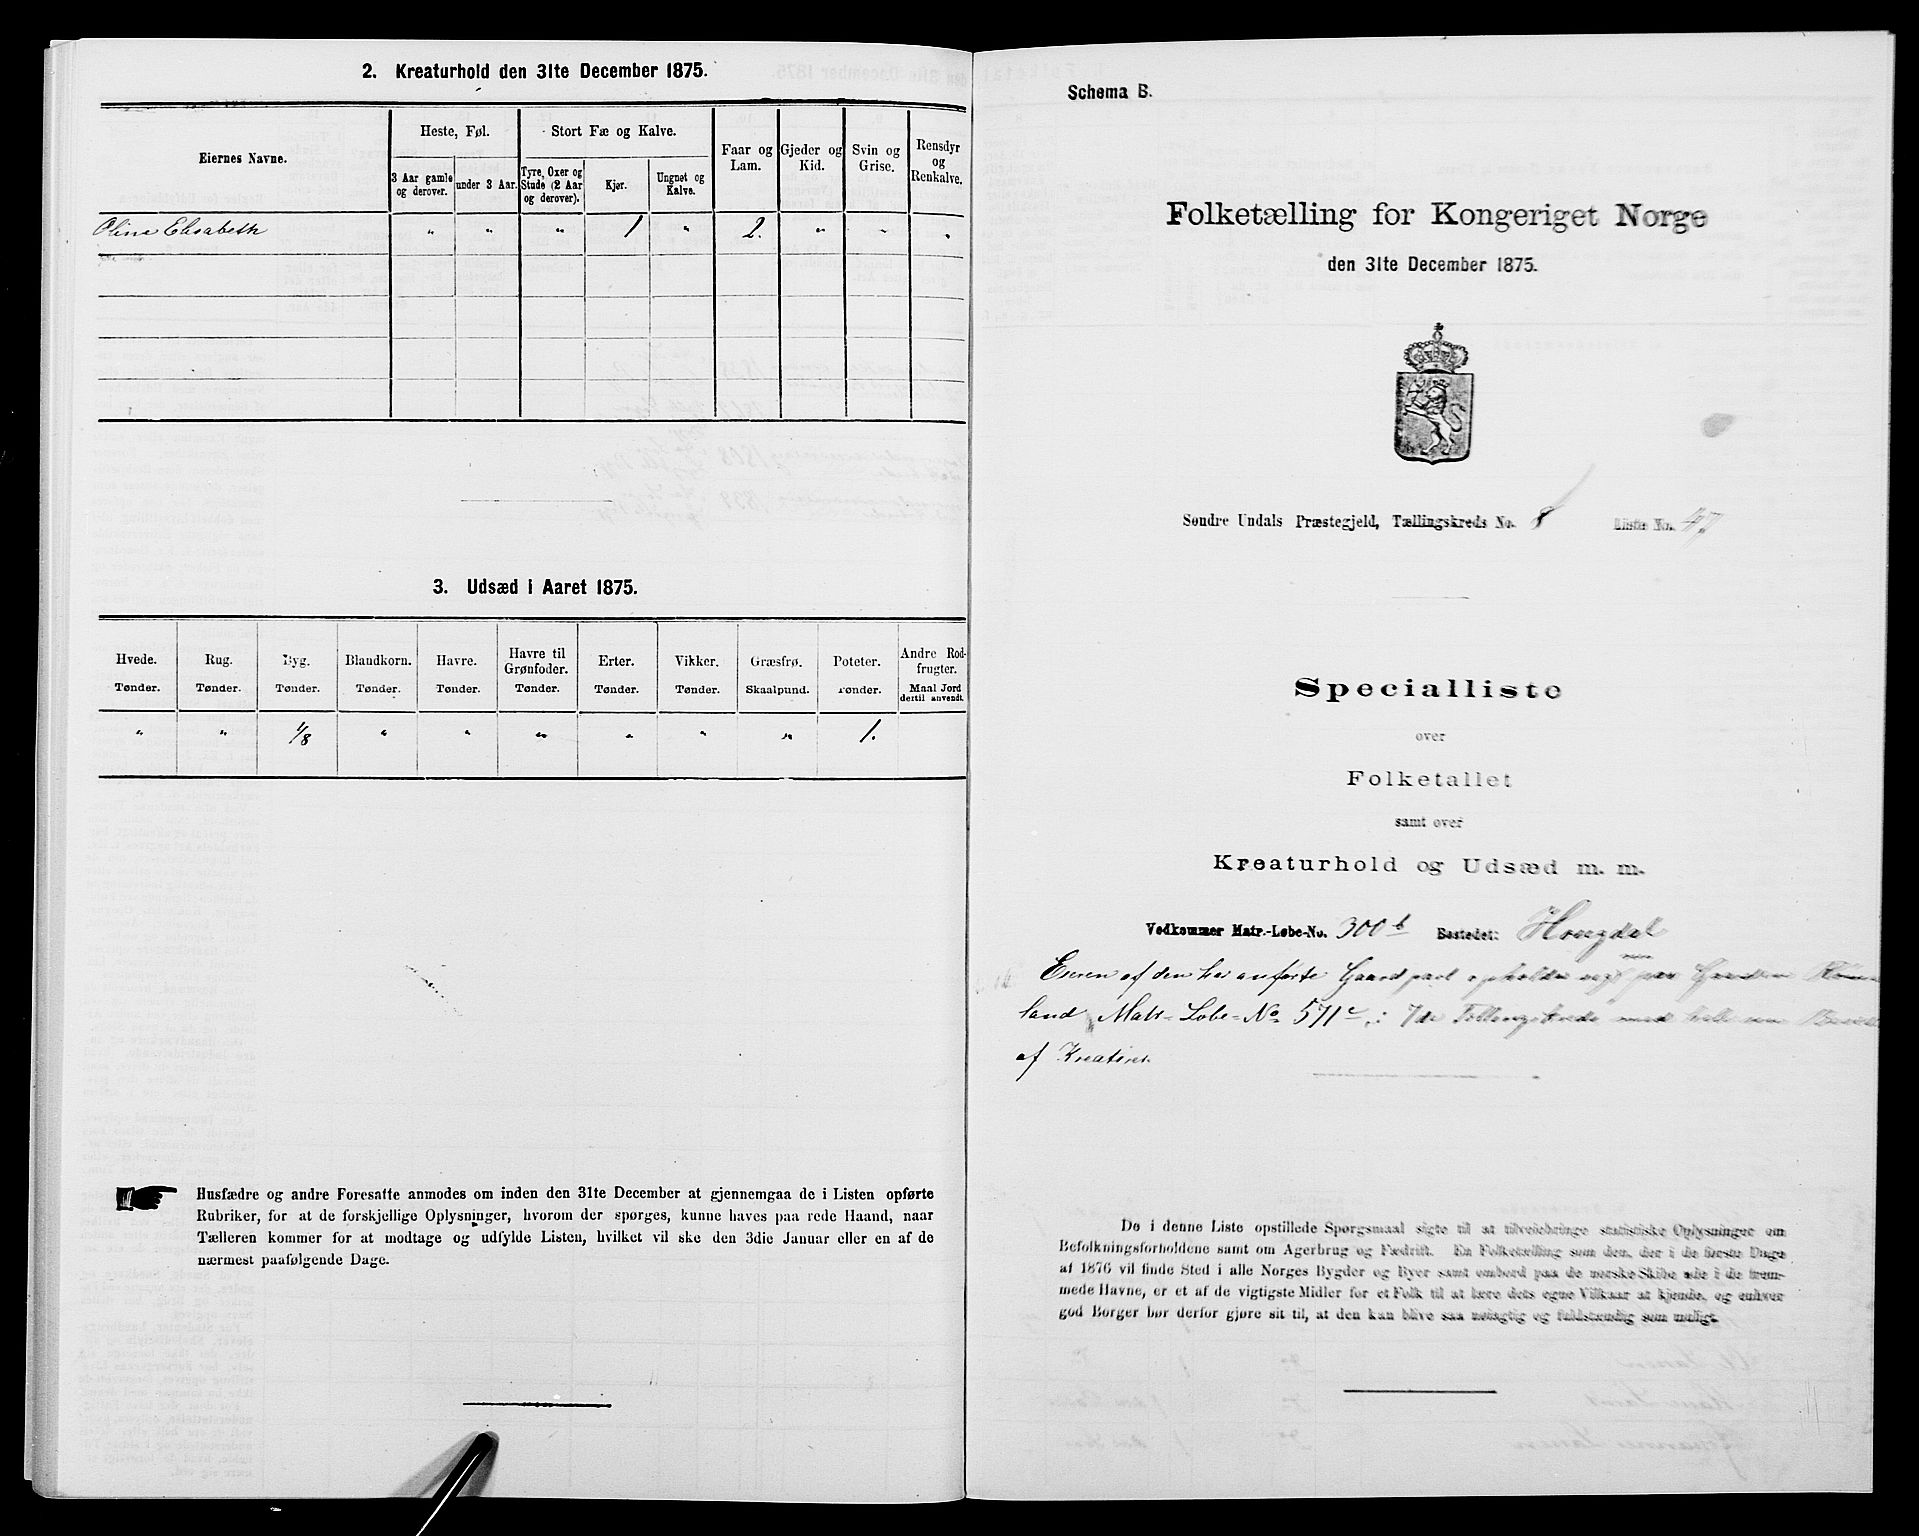 2. Kreaturhold den 31te December 1875.
Eiernes Navne.
Heste, Føl.
Stort Fæ og Kalve.
Faar og Lam.
Gjeder og Kid.
Svin og Grise.
Rensdyr og Renkalve.
3 Aar gamle og derover.
under 3 Aar.
Tyre, Oxer og Stude (2 Aar og derover).
Kjør.
Ungnøt og Kalve.
Oline Elisabeth " " " 1 " 2. " " "
3. Udsæd i Aaret 1875.
Hvede. Rug. Byg. Blandkorn. Havre. Havre til Grønfoder. Erter. Vikker. Græsfrø. Poteter. Andre Rodfrugter.
Tønder. Tønder. Tønder. Tønder. Tønder. Tønder. Tønder. Tønder. Skaalpund. Tønder. Maal Jord dertil anvendt.
" " 1/8 " " " " " " 1.
Husfædre og andre Foresatte anmodes om inden den 31te December at gjennemgaa de i Listen opførte
Rubriker, for at de forskjellige Oplysninger, hvorom der spørges, kunne haves paa rede Haand, naar
Tælleren kommer for at modtage og udfylde Listen, hvilket vil ske den 3die Januar eller en af de
nærmest paafølgende Dage.
Schema B.
Folketælling for Kongeriget Norge
den 31te December 1875.
Søndre Undals Præstegjeld, Tællingskreds No. 8 Liste No. 47
Specialliste
over
Folketallet
samt over
Kreaturhold og Udsæd m. m.
Vedkommer Matr.-Løbe-No. 300 b Bostedet:
Eieren af den her anførte Gaardpart opholder sig paa Gaarden
land Matr-Løbe-No 571c i 7de med
af Kreature
De i denne Liste opstillede Spørgsmaal sigte til at tilveiebringe statistiske Oplysninger om
Befolkningsforholdene samt om Agerbrug og Fædrift. En Folketælling som den, der i de første Dage
af 1876 vil finde Sted i alle Norges Bygder og Byer samt ombord paa de norske Skibe ude i de frem-
mede Havne, er et af de vigtigste Midler for et Folk til at lære dets egne Vilkaar at kjende, og enhver
god Borger bør derfor gjøre sit til, at den kan blive saa nøiagtig og fuldstændig som muligt.